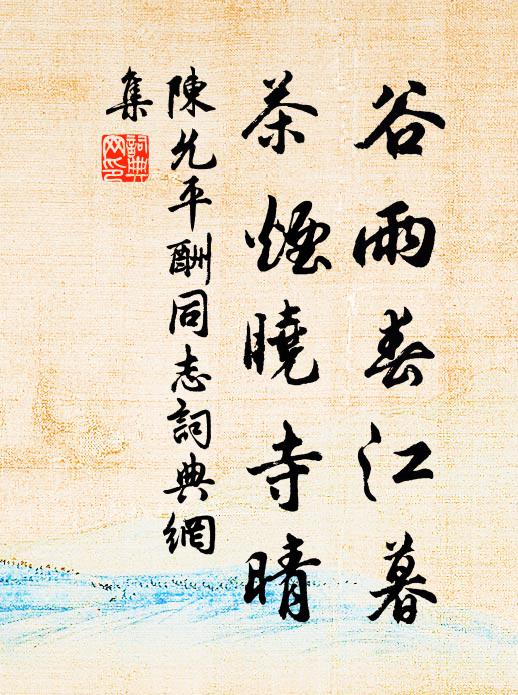 谷雨春江暮
茶煙曉寺晴
陳允平酬同志詞典網
集
詞典
网印